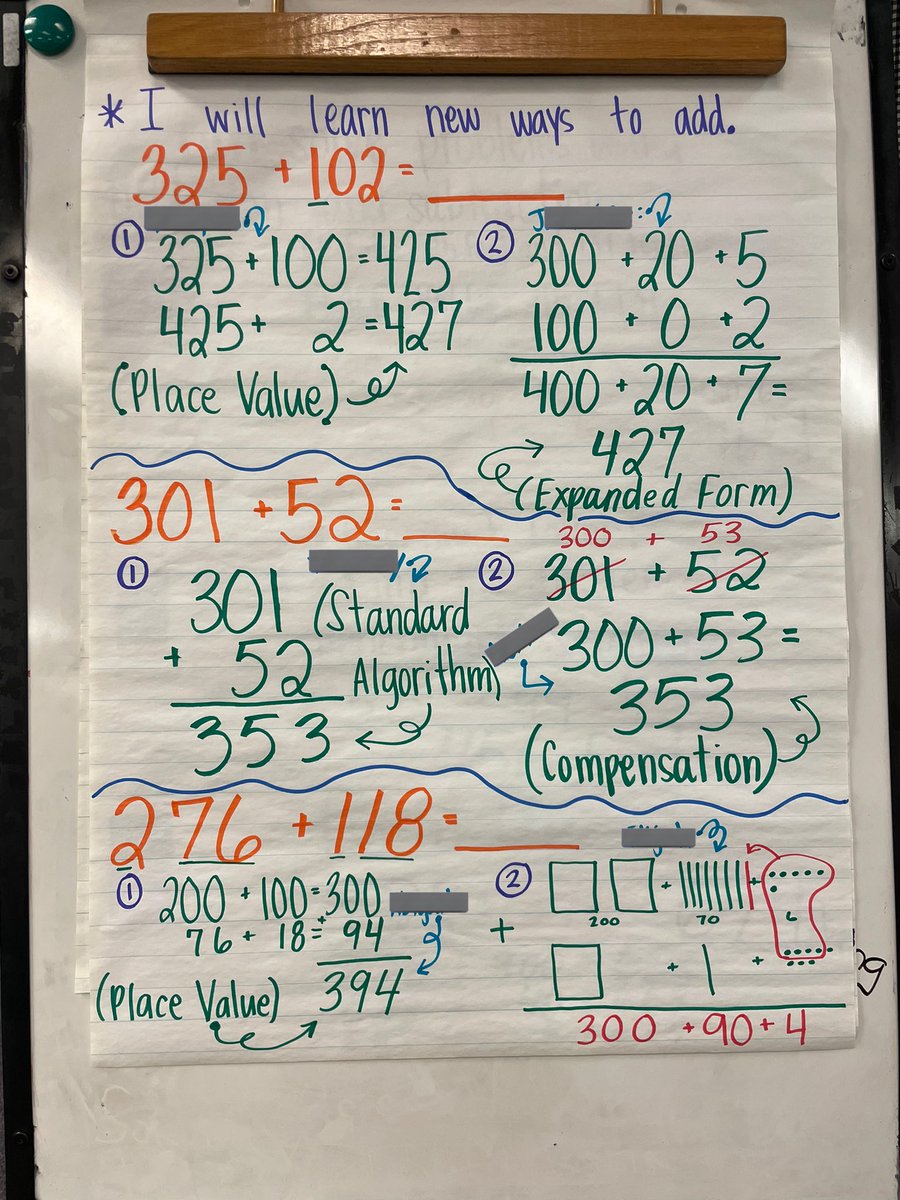 * I will learn new ways to add.
325 + 102 = ______
① 325 + 100 = 425
425 + 2 = 427
(Place Value)
② J
300 + 20 + 5
100 + 0 + 2
400 + 20 + 7 =
427
(Expanded Form)
301 + 52 = ______
① 301 (Standard
+ 52 Algorithm)
353
300 + 53
② 301 + 52
300 + 53 =
353
(Compensation)
276 + 118 = ______
① 200 + 100 = 300
+
76 + 18 = 94
394
(Place Value)
② + +
200 70 6
+ + +
300 + 90 + 4